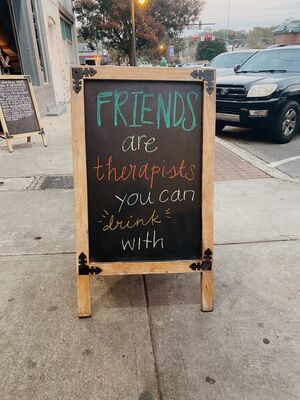 FRIENDS
are
therapists
you can
drink
with